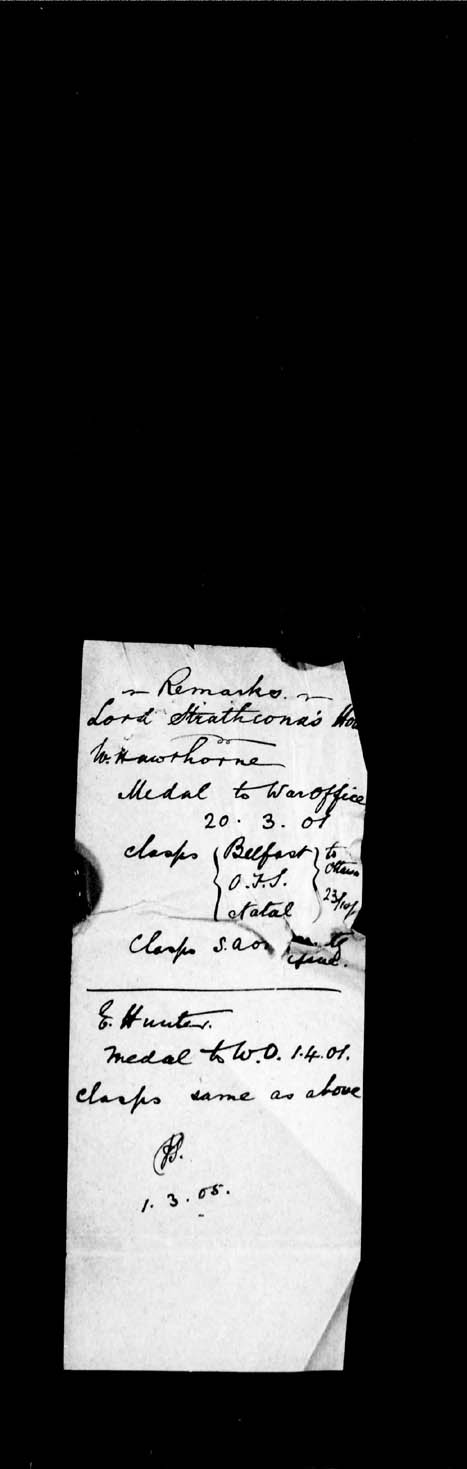 ~ Remarks. ~
Lord Strathcona's
W. Hawthorne
Medal to War Office
20. 3. 01
clasps { Belfast } to
O.F.S. Ottawa
Natal
Clasps S.A. 01
issue.
E. Hunter.
Medal to W.O. 1.4.01.
clasps same as above
1. 3. 05.